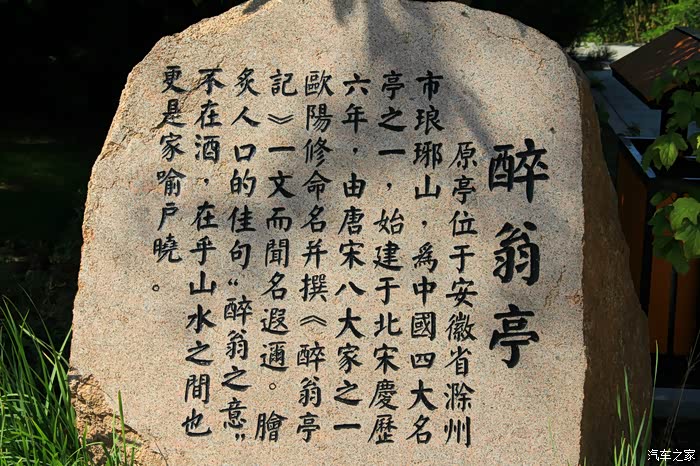 醉翁亭
原亭位于安徽省滁州
市琅琊山，為中國四大名
亭之一，始建于北宋慶歷
六年，由唐宋八大家之一
歐陽修命名并撰《醉翁亭
記》一文而聞名遐邇。膾
炙人口的佳句“醉翁之意”
不在酒，在乎山水之間也
更是家喻戶曉。
汽车之家